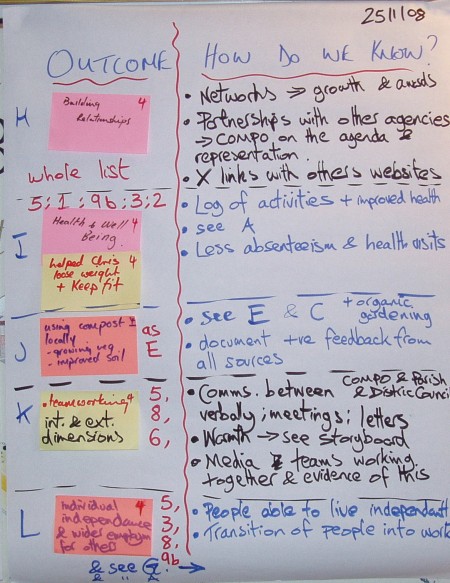 25/1/08
OUTCOME
HOW DO WE KNOW?
H
Building 4
Relationships
whole list
5; 1; 9b; 3; 2
• Networks → growth & awards
• Partnerships with other agencies
→ COMPO on the agenda &
representation.
• X links with others websites
I
Health & Well 4
Being.
helped Chris 4
loose weight
+ Keep fit
• Log of activities + improved health
• see A
• Less absenteeism & health visits
J
using compost
locally
- growing veg
- improved soil
4
as
E
• see E & C + organic
gardening
• document +ve feedback from
all sources
K
• teamworking 4
int. & ext.
dimensions
5,
8,
6,
• Comms. between COMPO & Parish
& District Council
verbaly; meetings; letters
• Warmth → see storyboard
• Media & teams working
together & evidence of this
L
Individual 4
independance
& wider employm
for others
5,
3,
8,
9b
& see 9. →
• People able to live independant
• Transition of people into work